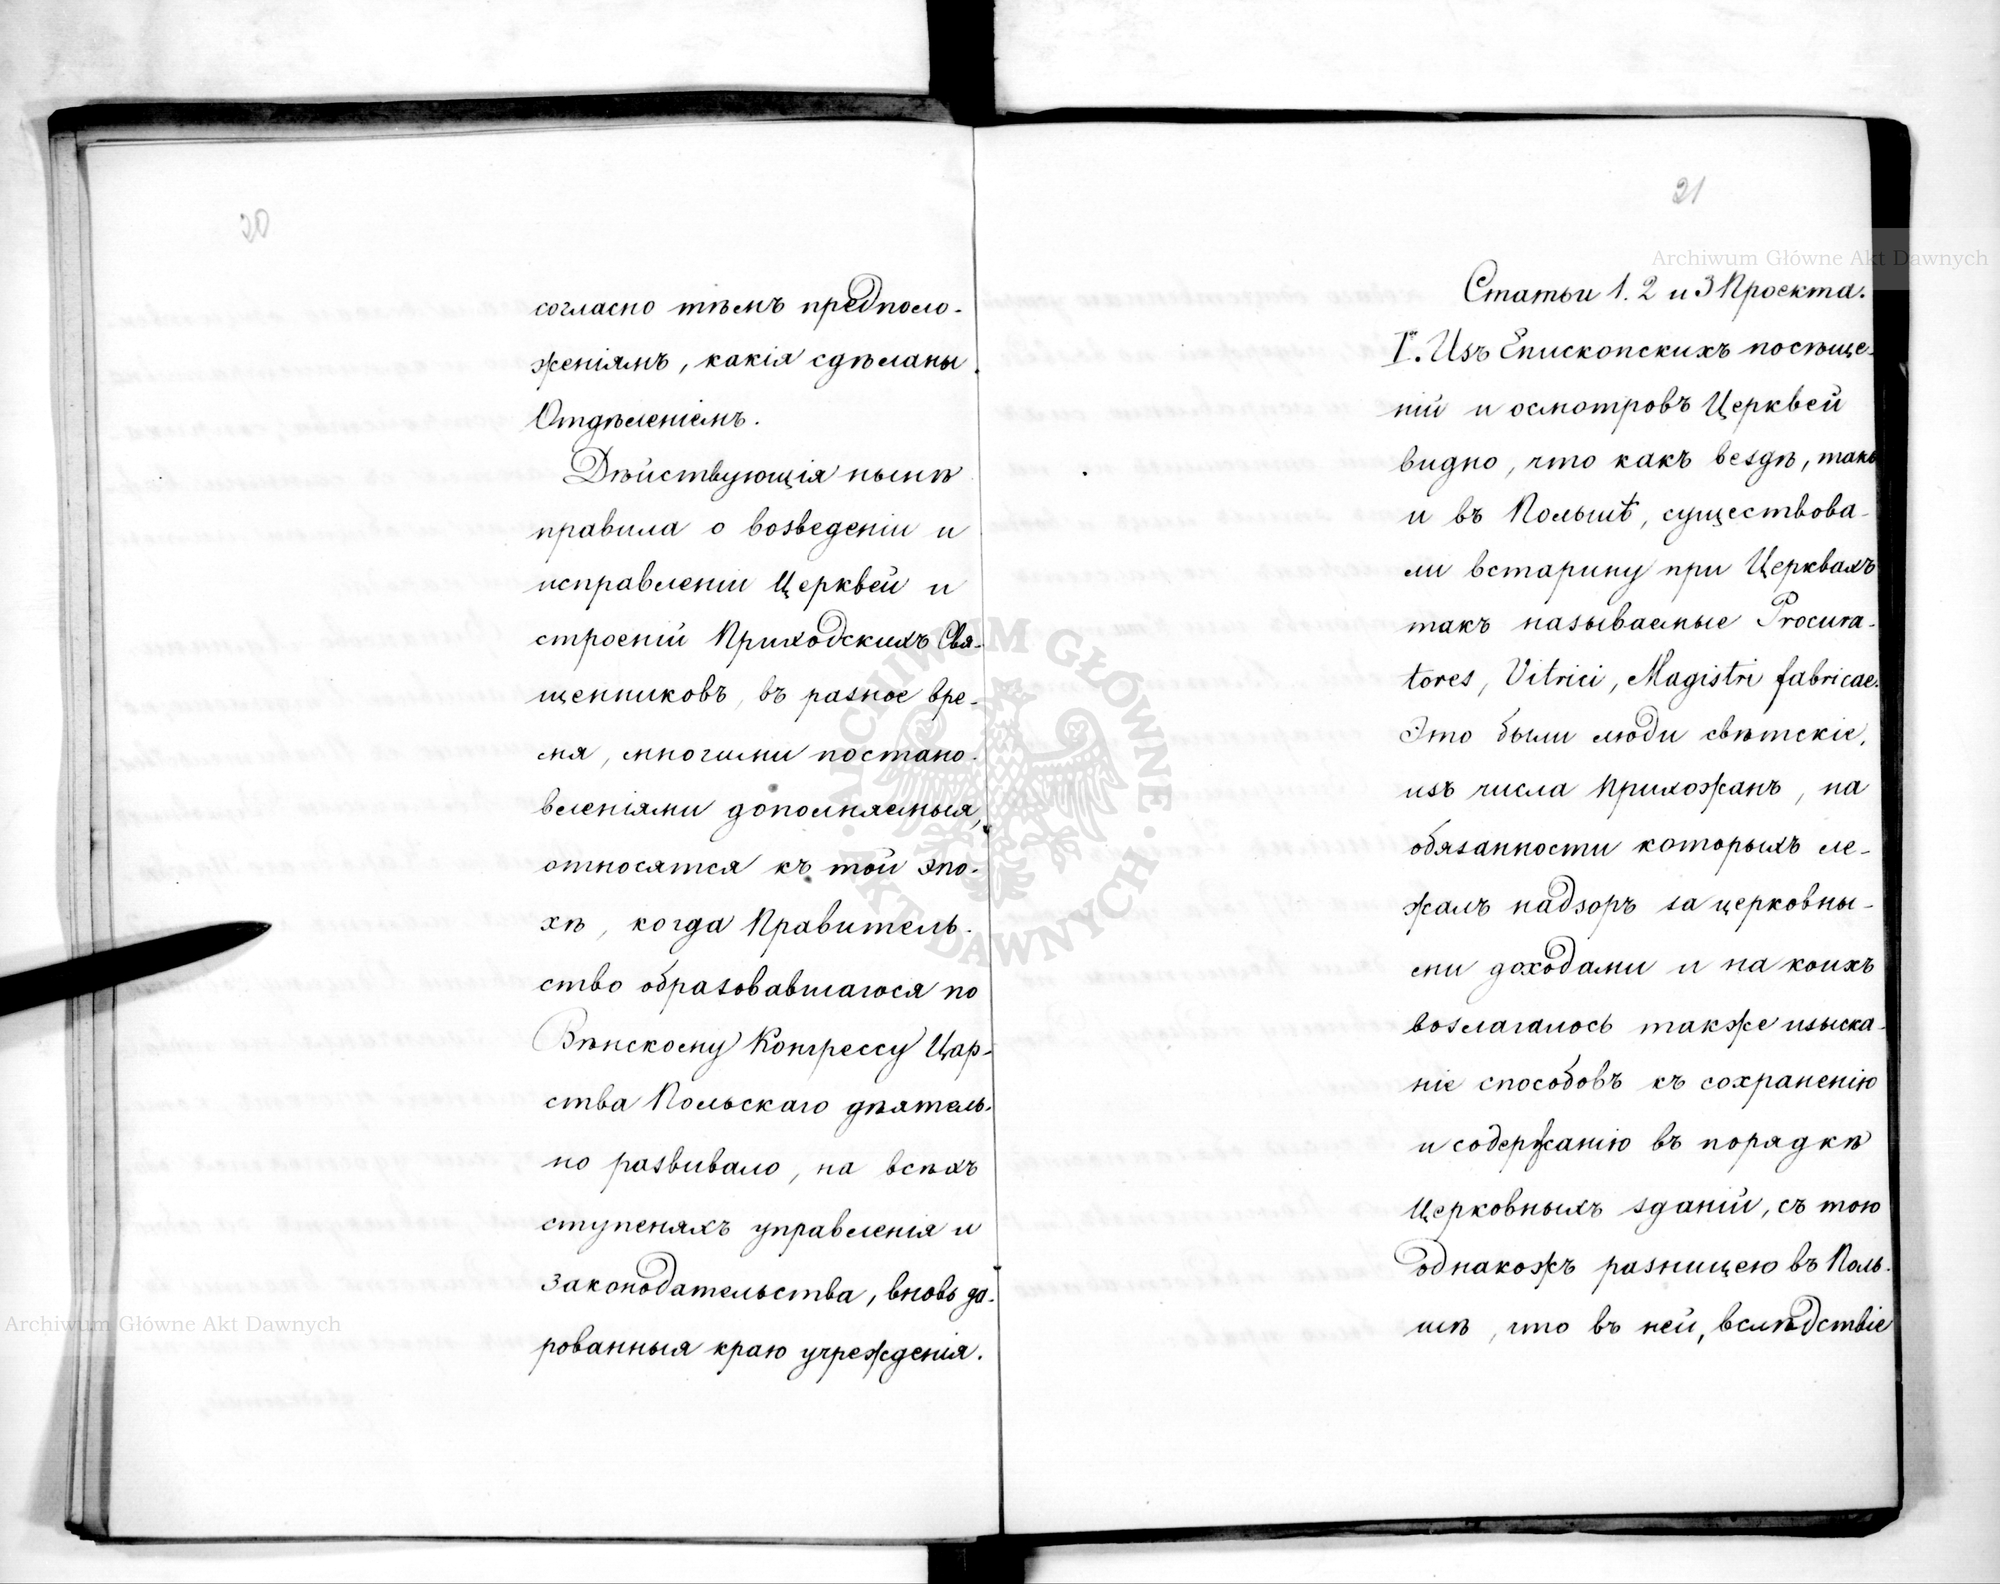 20
согласно тѣмъ предполо-
женіямъ, какія сдѣланы
Отдѣленіемъ.
Дѣйствующія нынѣ
правила о возведеніи и
исправленіи Церквей и
строеній Приходскихъ Свя-
щенниковъ, въ разное вре-
мя, многими постано-
вленіями дополняемыя,
относятся къ той эпо-
хѣ, когда Правитель-
ство образовавшагося по
Вѣнскому Конгрессу Цар-
ства Польскаго дѣятель-
но развивало, на всѣхъ
ступеняхъ управленія и
законодательства, вновь да-
рованныя краю учрежденія.
21
Статьи 1. 2 и 3 Проекта.
I. Изъ Епископскихъ посѣще-
ній и осмотровъ Церквей
видно, что какъ вездѣ, такъ
и въ Польшѣ, существова-
ли встарину при Церквахъ
такъ называемые Procura-
tores, Vitrici, Magistri fabricae.
Это были люди свѣтскіе,
изъ числа Прихожанъ, на
обязанности которыхъ ле-
жалъ надзоръ за церковны-
ми доходами и на коихъ
возлагалось также изыска-
ніе способовъ къ сохраненію
и содержанію въ порядкѣ
Церковныхъ зданій, съ тою
однакожъ разницею въ Поль-
шѣ, что въ ней, вслѣдствіе
Archiwum Główne Akt Dawnych
Archiwum Główne Akt Dawnych
ARCHIWUM GŁÓWNE AKT DAWNYCH